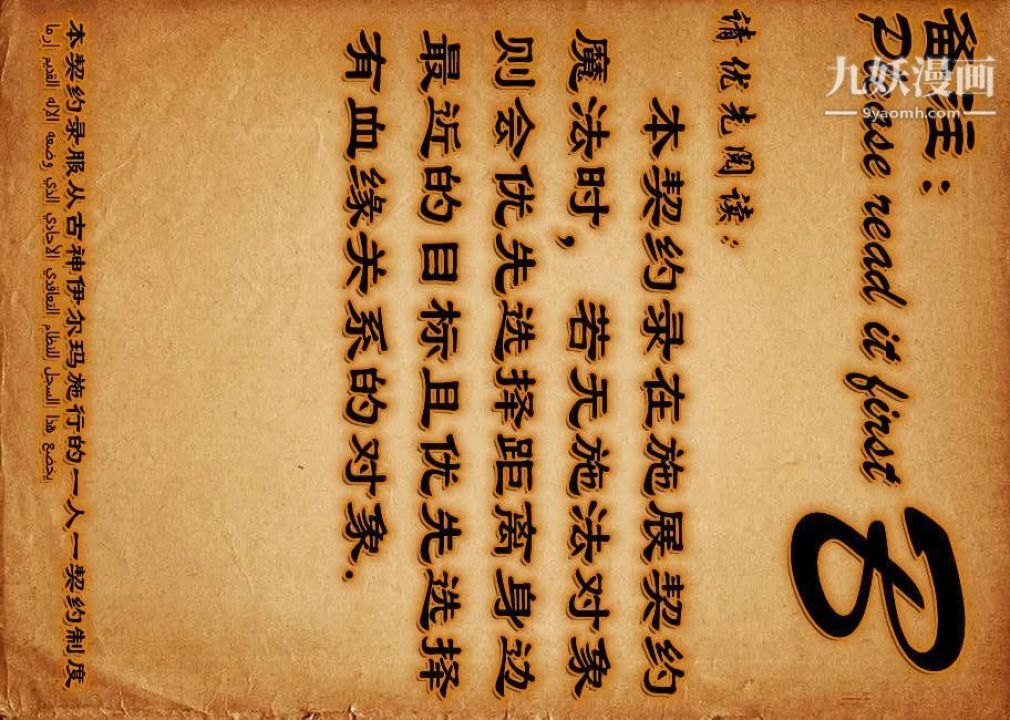 备注：
Please read it first
8
请优先阅读：
本契约录在施展契约
魔法时，若无施法对象
则会优先选择距离身边
最近的目标且优先选择
有血缘关系的对象.
本契约录服从古神伊尔玛施行的一人一契约制度
يخضع هذا السجل للنظام التعاقدي الأحادي الذي وضعه الإله القديم إرما
九妖漫画
9yaomh.com